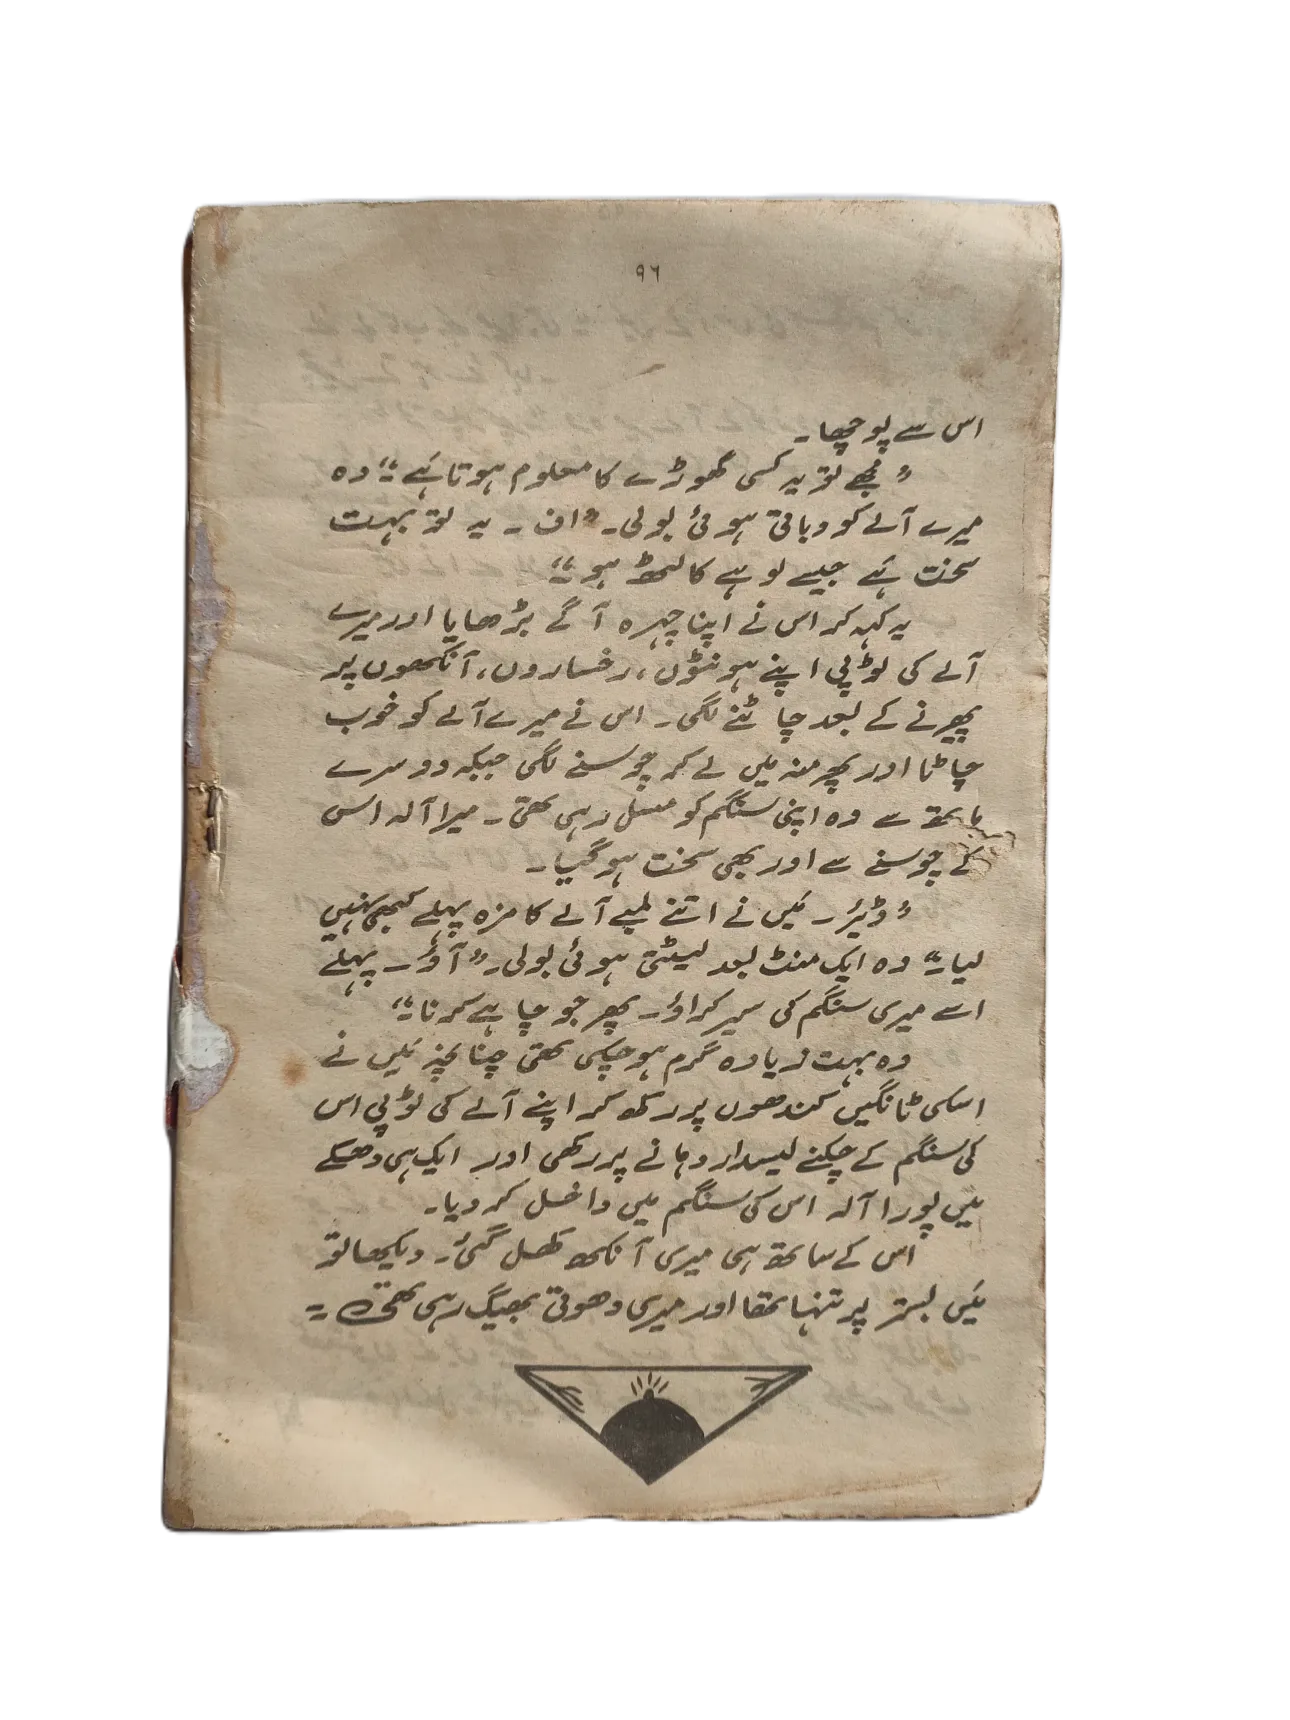 ۹۶
اس سے پوچھا۔
”مجھے تو یہ کسی گھوڑے کا معلوم ہوتا ہَے۔“ وہ
میرے آلے کو دباتی ہوئی بولی۔ ”اف ۔ یہ تو بہت
سخت ہَے جیسے لوہے کا لمھڑ ہو۔“
یہ کہہ کر اس نے اپنا چہرہ آگے بڑھایا اور میرے
آلے کی ٹوپی اپنے ہونٹوں، رخساروں، آنکھوں پر
پھیرنے کے بعد چاٹنے لگی۔ اس نے میرے آلے کو خوب
چاٹا اور پھر منہ میں لے کر چوسنے لگی جبکہ دوسرے
ہاتھ سے وہ اپنی سنگم کو مسل رہی تھی۔ میرا آلہ اس
کے چوسنے سے اور بھی سخت ہو گیا۔
”ڈیئر۔ مَیں نے اتنے لمبے آلے کا مزہ پہلے کبھی نہیں
لیا۔“ وہ ایک منٹ بعد لیٹتی ہوئی بولی۔ ”آؤ۔ پہلے
اسے میری سنگم کی سیر کراؤ۔ پھر جو چاہے کرنا۔“
وہ بہت زیادہ گرم ہو چکی تھی چنانچہ مَیں نے
اسکی ٹانگیں کندھوں پر رکھ کر اپنے آلے کی ٹوپی اس
کی سنگم کے چکنے لیسدار دہانے پر رکھی اور ایک ہی دھکے
میں پورا آلہ اس کی سنگم میں داخل کر دیا۔
اس کے ساتھ ہی میری آنکھ کھل گئی۔ دیکھا تو
مَیں بستر پر تنہا تھا اور میری دھوتی بھیگ رہی تھی۔